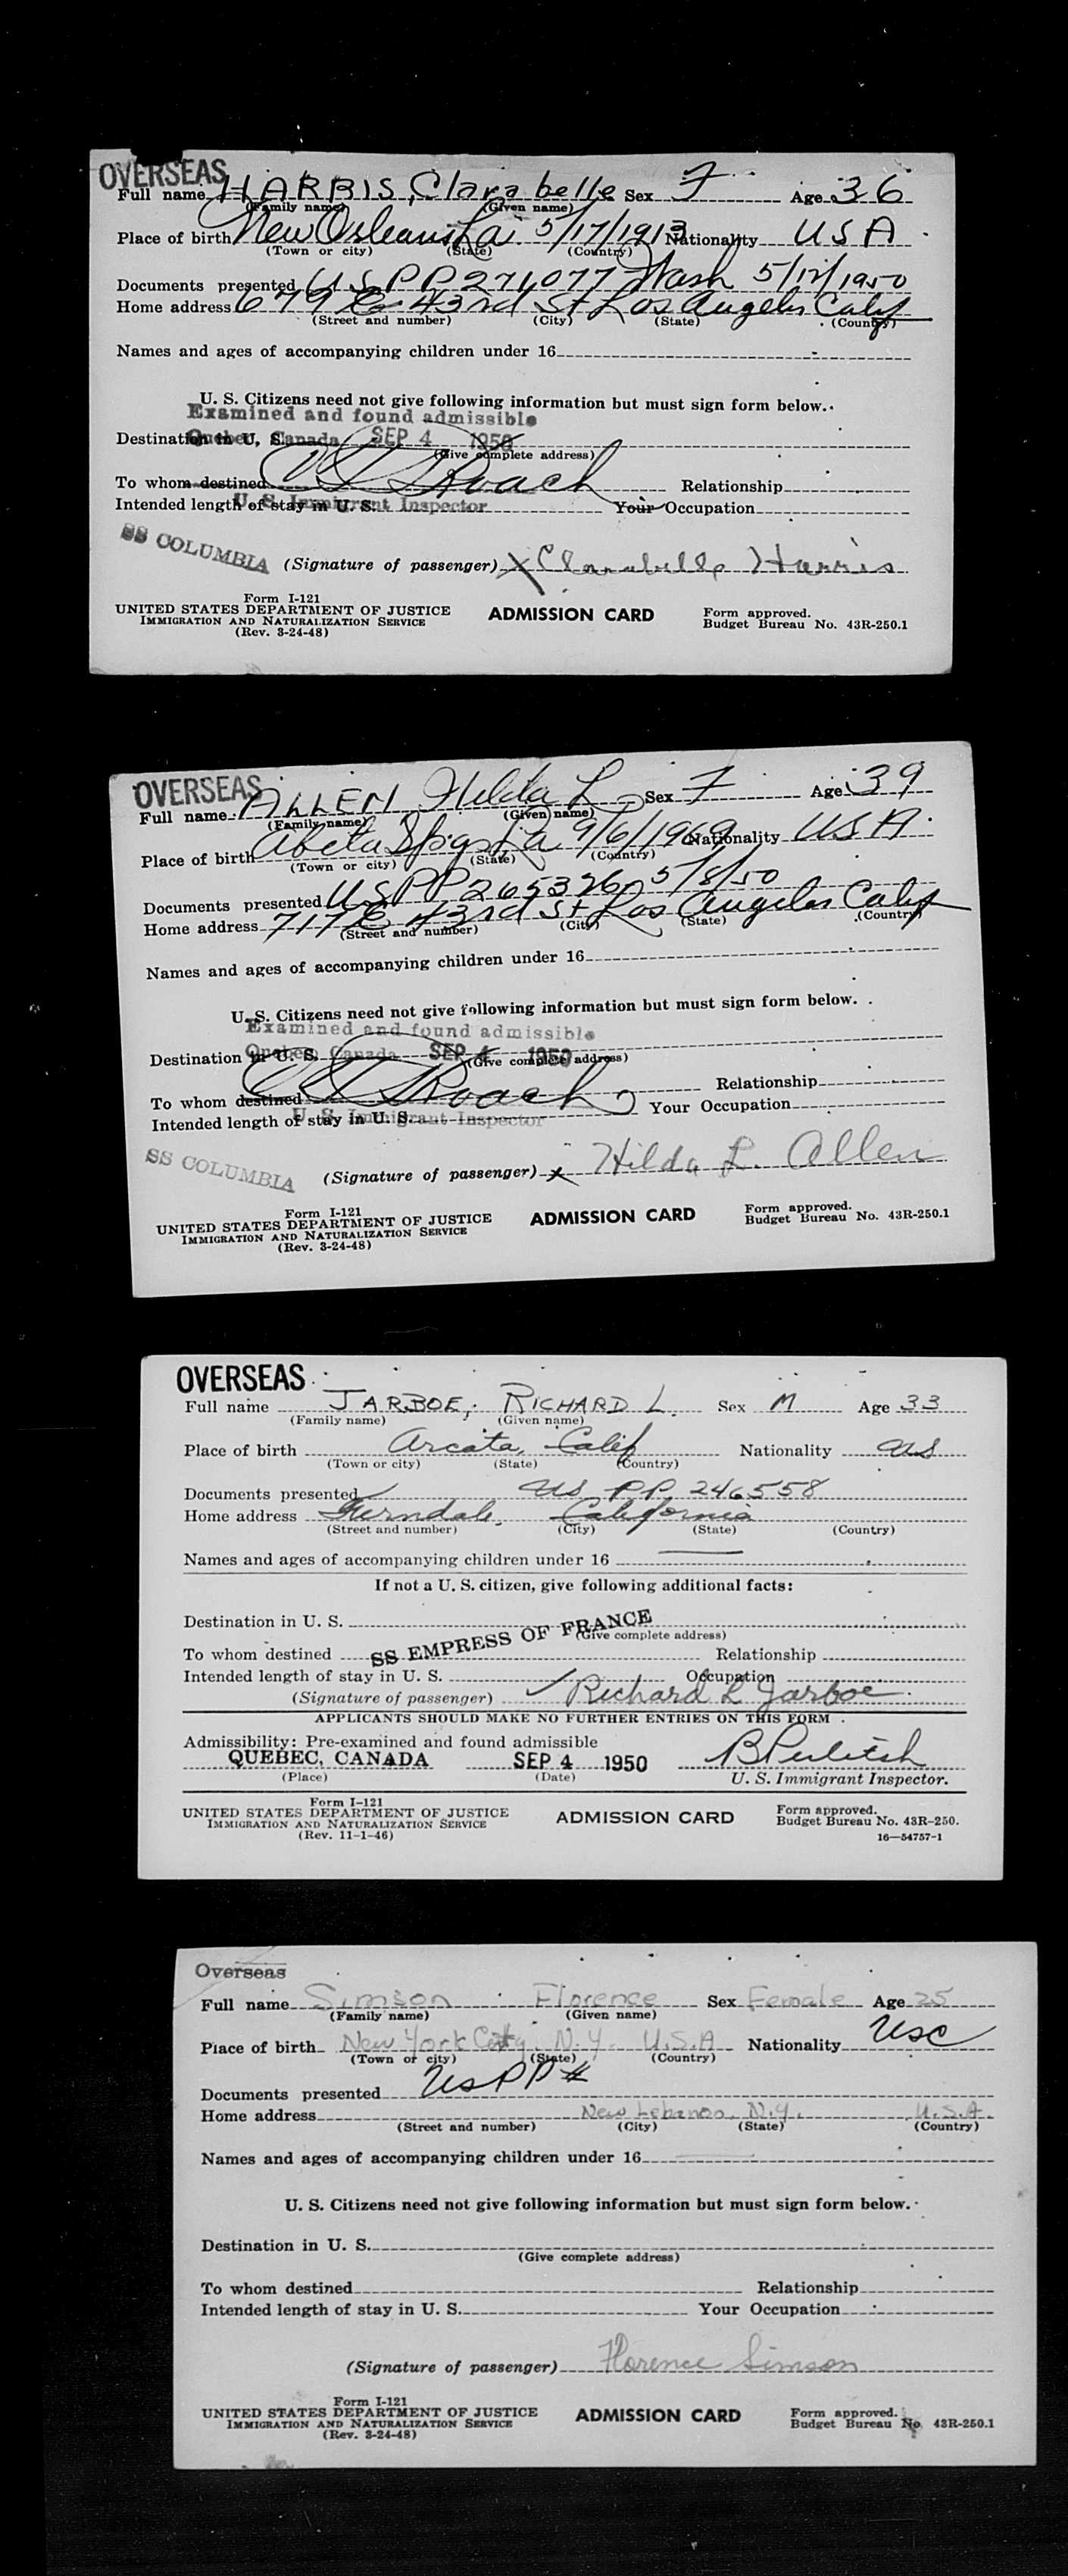 OVERSEAS
Full name HARRIS, Clarabelle Sex F Age 36
(Family name) (Given name)
Place of birth New Orleans La. 5/17/1913 Nationality USA
(Town or city) (State) (Country)
Documents presented US PP 271077 Wash 5/12/1950
Home address 679 E 43rd St Los Angeles Calif
(Street and number) (City) (State) (Country)
Names and ages of accompanying children under 16
U. S. Citizens need not give following information but must sign form below.
Examined and found admissible
Destination in U. S. Quebec, Canada SEP 4 1950
(Give complete address)
To whom destined Roach Relationship
Intended length of stay in U. S. U. S. Immigrant Inspector Your Occupation
SS COLUMBIA (Signature of passenger) X Clarabelle Harris
Form I-121
UNITED STATES DEPARTMENT OF JUSTICE ADMISSION CARD Form approved.
IMMIGRATION AND NATURALIZATION SERVICE Budget Bureau No. 43R-250.1
(Rev. 3-24-48)
OVERSEAS
Full name ALLEN Hilda L Sex F Age 39
(Family name) (Given name)
Place of birth Abita Spgs La 9/6/19 Nationality USA
(Town or city) (State) (Country)
Documents presented US PP 265326 5/8/50
Home address 717 E 43rd St Los Angeles Calif
(Street and number) (City) (State) (Country)
Names and ages of accompanying children under 16
U. S. Citizens need not give following information but must sign form below.
Examined and found admissible
Destination in U. S. Quebec, Canada SEP 4 1950
(Give complete address)
To whom destined Roach Relationship
Intended length of stay in U. S. U. S. Immigrant Inspector Your Occupation
SS COLUMBIA (Signature of passenger) x Hilda L. Allen
Form I-121
UNITED STATES DEPARTMENT OF JUSTICE ADMISSION CARD Form approved.
IMMIGRATION AND NATURALIZATION SERVICE Budget Bureau No. 43R-250.1
(Rev. 3-24-48)
OVERSEAS
Full name JARBOE, RICHARD L. Sex M Age 33
(Family name) (Given name)
Place of birth Arcata, Calif Nationality US
(Town or city) (State) (Country)
Documents presented US PP 246558
Home address Ferndale, California
(Street and number) (City) (State) (Country)
Names and ages of accompanying children under 16
If not a U. S. citizen, give following additional facts:
Destination in U. S.
SS EMPRESS OF FRANCE (Give complete address)
To whom destined Relationship
Intended length of stay in U. S. Occupation
(Signature of passenger) Richard L Jarboe
APPLICANTS SHOULD MAKE NO FURTHER ENTRIES ON THIS FORM
Admissibility: Pre-examined and found admissible
QUEBEC, CANADA SEP 4 1950
(Place) (Date) U. S. Immigrant Inspector.
Form I-121
UNITED STATES DEPARTMENT OF JUSTICE ADMISSION CARD Form approved.
IMMIGRATION AND NATURALIZATION SERVICE Budget Bureau No. 43R-250.
(Rev. 11-1-46) 16—54757-1
Overseas
Full name Simson Florence Sex Female Age 25
(Family name) (Given name)
Place of birth New York City N.Y. U.S.A Nationality USC
(Town or city) (State) (Country)
Documents presented US PP #
Home address New Lebanon, N.Y. U.S.A.
(Street and number) (City) (State) (Country)
Names and ages of accompanying children under 16
U. S. Citizens need not give following information but must sign form below.
Destination in U. S.
(Give complete address)
To whom destined Relationship
Intended length of stay in U. S. Your Occupation
(Signature of passenger) Florence Simson
Form I-121
UNITED STATES DEPARTMENT OF JUSTICE ADMISSION CARD Form approved.
IMMIGRATION AND NATURALIZATION SERVICE Budget Bureau No. 43R-250.1
(Rev. 3-24-48)